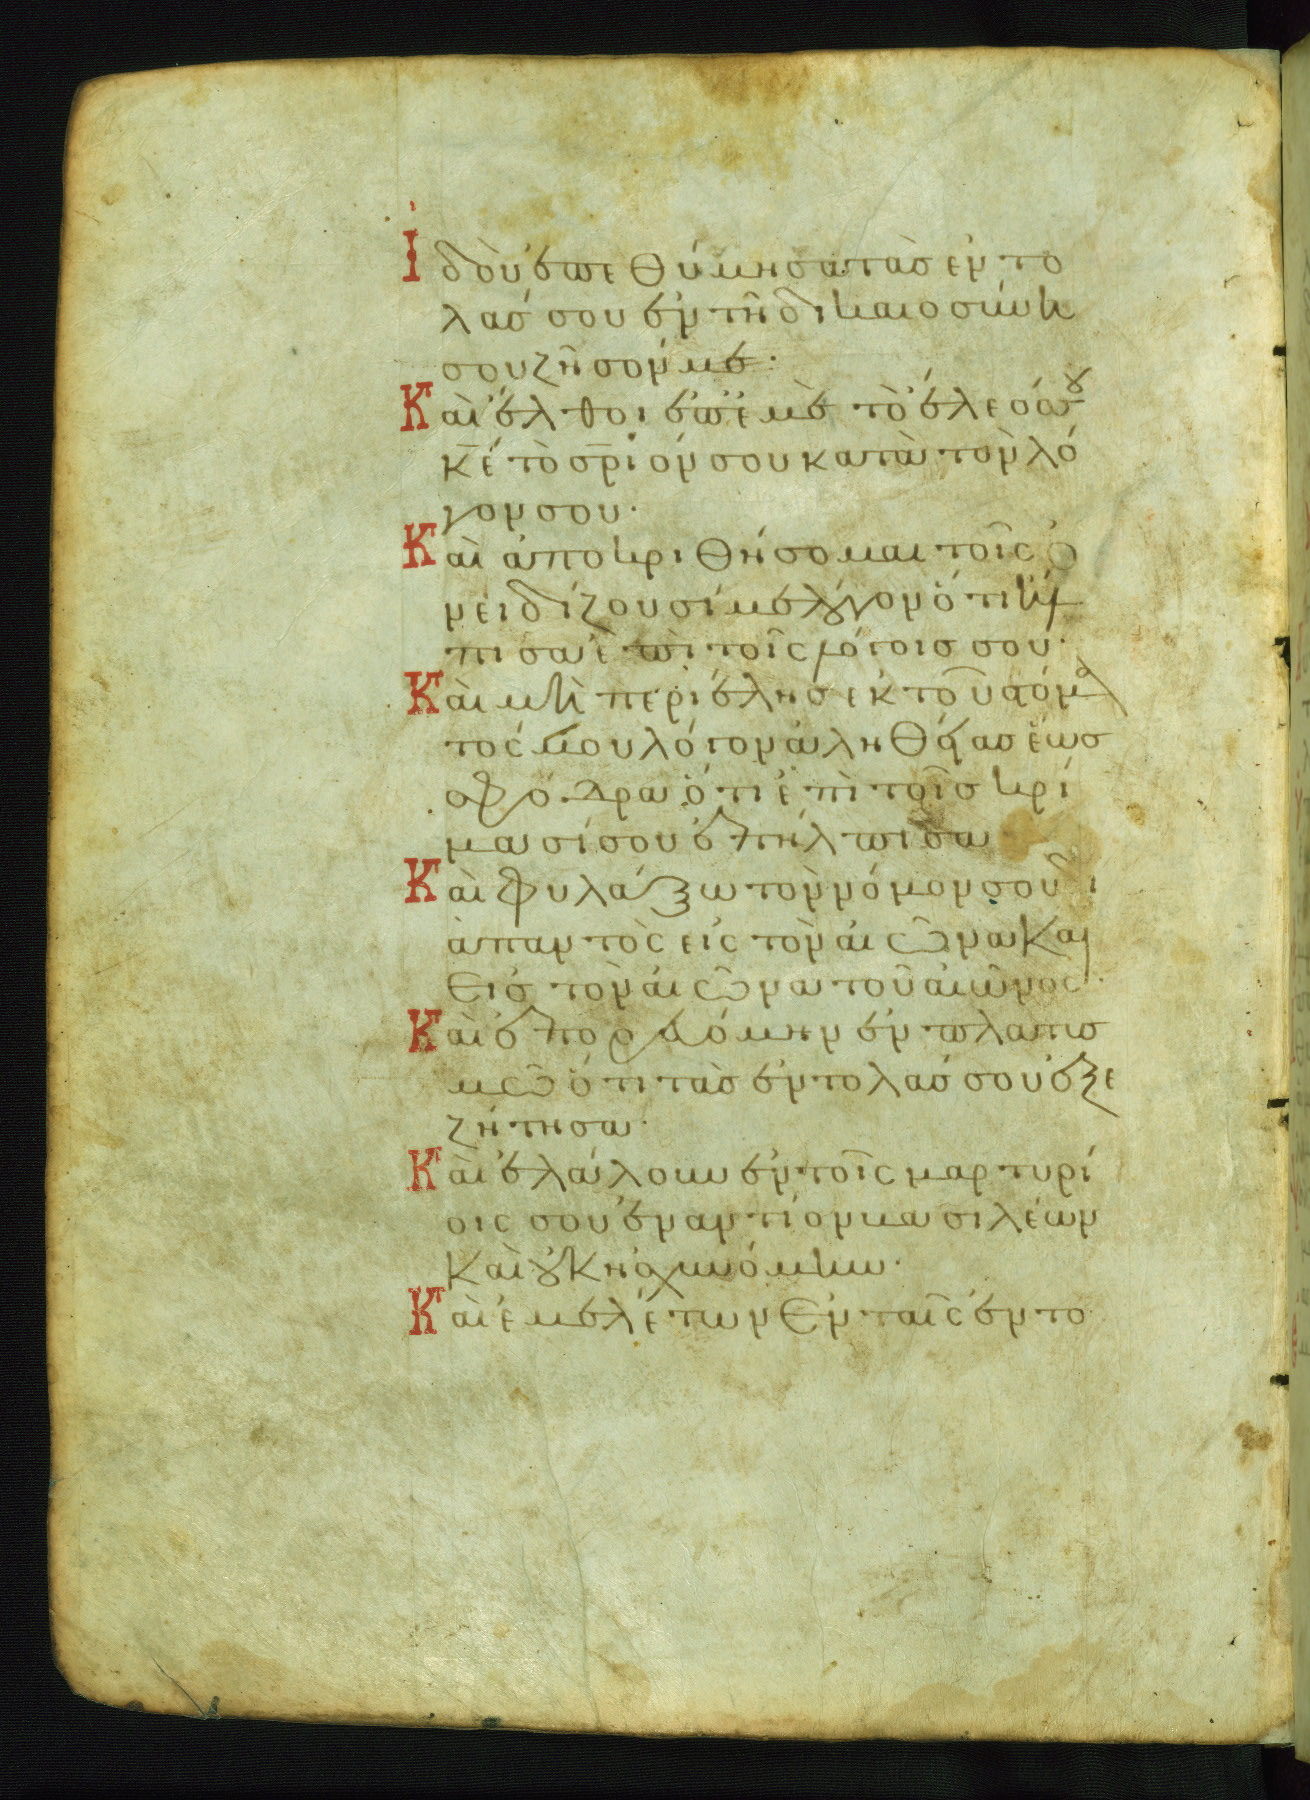 Ἰδοὺ ἐπεθύμησα τὰς ἐντο
λάς σου ἐν τῆ δικαιοσύνη
σου ζῆσόν με·
Καὶ ἔλθοι ἐπ ἐμὲ τὸ ἔλεόσ σου
κ̅ε τὸ σ̅ριόν σου κατὰ τὸν λό
γον σου·
Καὶ ἀποκριθήσομαι τοῖς ὀ
νειδίζουσί με λόγον ὅτι ἤλ
πισα ἐπὶ τοῖς λόγοισ σου·
Καὶ μὴ περιέλησ ἐκ τοῦ στόμα
τός μου λόγον ἀληθείασ ἕωσ
σφόδρα ὅτι ἐπὶ τοῖσ κρί
μασί σου ἐπήλπισα
Καὶ φυλάξω τὸν νόμον σου δι
ὰπαντὸς εἰς τὸν αἰῶνα καὶ
εἰσ τὸν αἰῶνα τοῦ αἰῶνος·
Καὶ ἐπορευόμην ἐν πλατυσ
μῶ ὅτι τὰσ ἐντολάσ σου ἐξε
ζήτησα·
Καὶ ἐλάλουν ἐν τοῖς μαρτυρί
οις σου ἐναντίον βασιλέων
καὶ οὐκ ἠσχυνόμην·
Καὶ ἐμελέτων ἐν ταῖς ἐντο